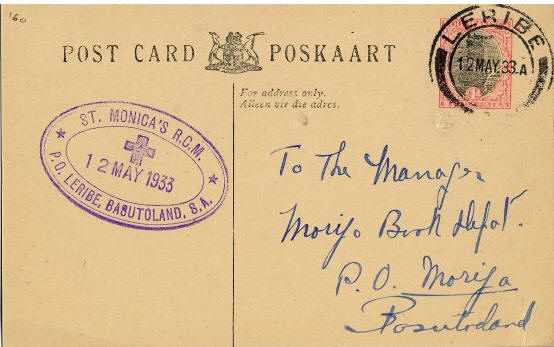 160
POST CARD POSKAART
For address only.
Alleen vir die adres.
LERIBE
12 MAY.33.A
ST. MONICA'S R.C.M.
12 MAY 1933
P.O. LERIBE, BASUTOLAND, S.A.
To The Manager
Morija Book Depot.
P.O. Morija
Basutoland